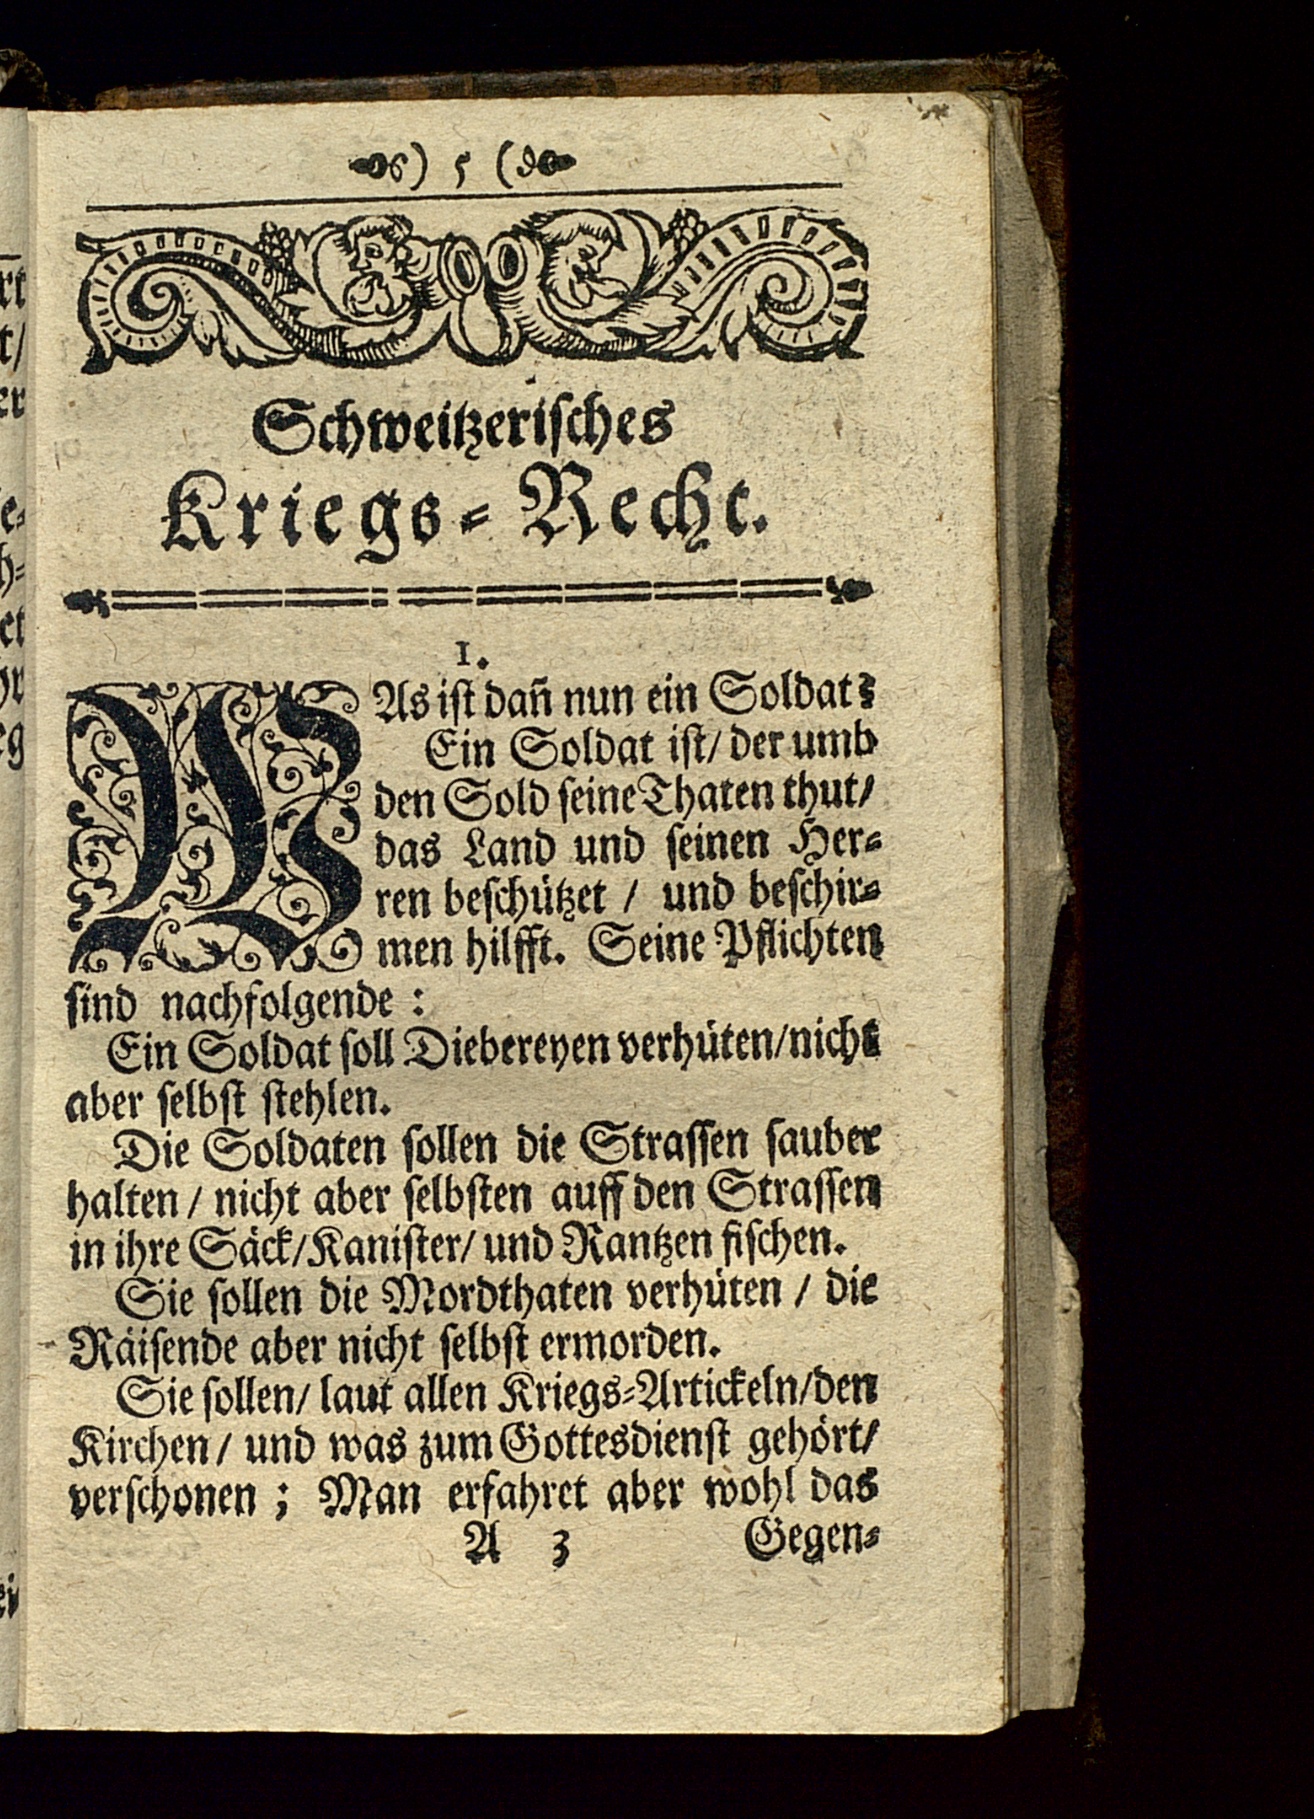 ) 5 (
Schweitzerisches
Kriegs-Recht.
1.
WAs ist dañ nun ein Soldat?
Ein Soldat ist/ der umb
den Sold seine Thaten thut/
das Land und seinen Her-
ren beschützet / und beschir-
men hilfft. Seine Pflichten
sind nachfolgende :
Ein Soldat soll Diebereyen verhüten/nicht
aber selbst stehlen.
Die Soldaten sollen die Strassen sauber
halten / nicht aber selbsten auff den Strassen
in ihre Säck/Kanister/ und Rantzen fischen.
Sie sollen die Mordthaten verhüten / die
Räisende aber nicht selbst ermorden.
Sie sollen/ laut allen Kriegs-Artickeln/den
Kirchen / und was zum Gottesdienst gehört/
verschonen ; Man erfahret aber wohl das
A 3 Gegen-